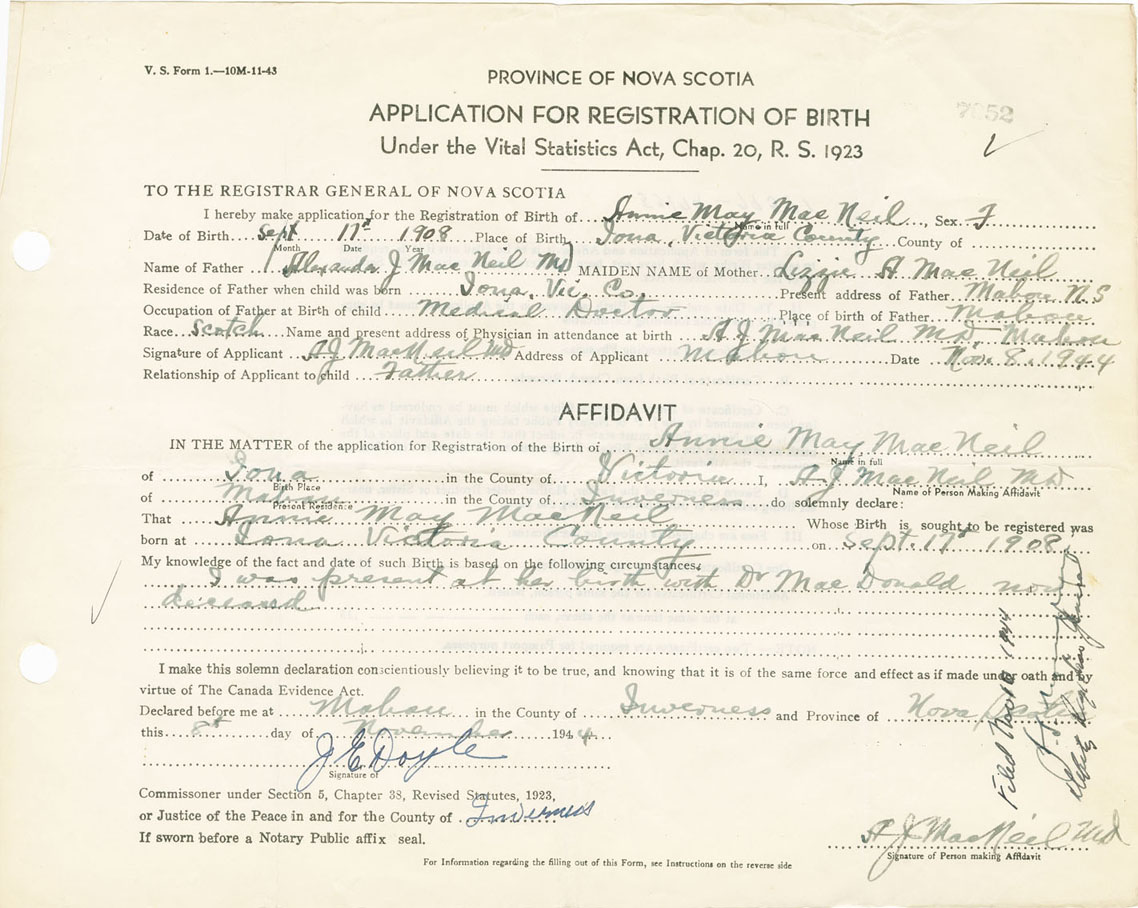 V. S. Form 1.—10M-11-43
PROVINCE OF NOVA SCOTIA
APPLICATION FOR REGISTRATION OF BIRTH
7652
Under the Vital Statistics Act, Chap. 20, R. S. 1923
TO THE REGISTRAR GENERAL OF NOVA SCOTIA
I hereby make application for the Registration of Birth of Annie May MacNeil, Sex F
Name in full
Date of Birth Sept 17th 1908 Place of Birth Iona, Victoria County County of
Month Date Year
Name of Father Alexander J MacNeil MD MAIDEN NAME of Mother Lizzie A MacNeil
Residence of Father when child was born Iona, Vic. Co. Present address of Father Mabou N S
Occupation of Father at Birth of child Medical Doctor Place of birth of Father Mabou
Race Scotch Name and present address of Physician in attendance at birth A J MacNeil MD, Mabou
Signature of Applicant A J MacNeil MD Address of Applicant Mabou Date Nov. 8, 1944
Relationship of Applicant to child Father
AFFIDAVIT
IN THE MATTER of the application for Registration of the Birth of Annie May MacNeil
Name in full
of Iona in the County of Victoria I, A J MacNeil MD
Birth Place Name of Person Making Affidavit
of Mabou in the County of Inverness do solemnly declare:
Present Residence
That Annie May MacNeil Whose Birth is sought to be registered was
born at Iona Victoria County on Sept. 17th 1908
My knowledge of the fact and date of such Birth is based on the following circumstances
I was present at her birth with Dr MacDonald now
deceased
I make this solemn declaration conscientiously believing it to be true, and knowing that it is of the same force and effect as if made under oath and by
virtue of The Canada Evidence Act.
Declared before me at Mabou in the County of Inverness and Province of Nova Scotia
this 8th day of November 1944
J E Doyle
Signature of
Commissoner under Section 5, Chapter 38, Revised Statutes, 1923,
or Justice of the Peace in and for the County of Inverness
If sworn before a Notary Public affix seal.
A J MacNeil MD
Signature of Person making Affidavit
For Information regarding the filling out of this Form, see Instructions on the reverse side
Filed Nov 10 1944
Deputy Registrar General